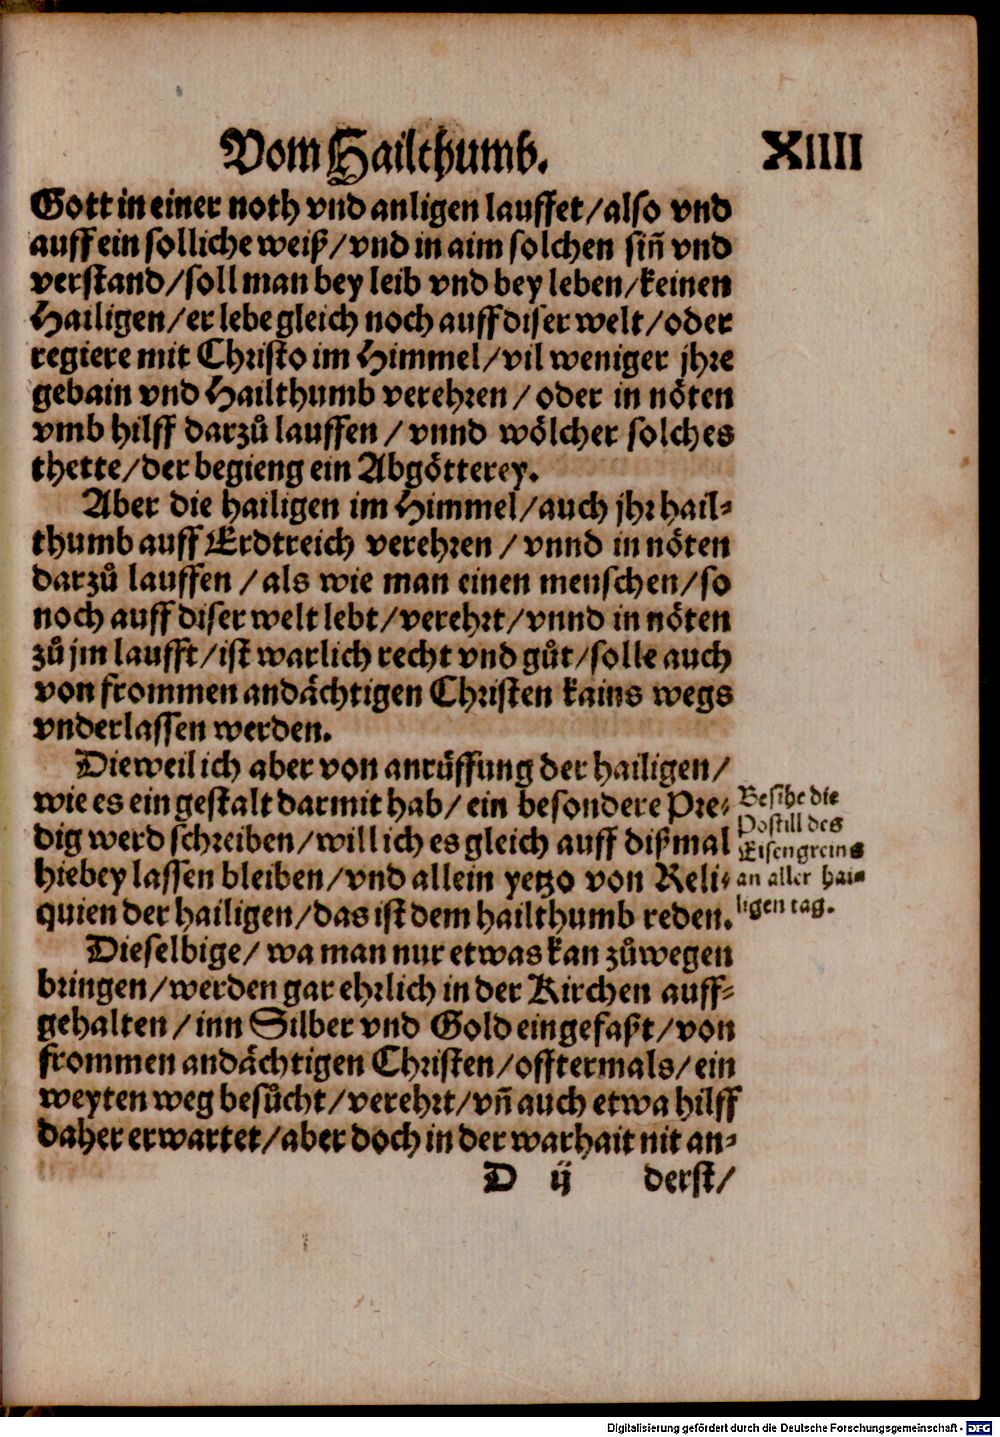 Vom Hailthumb. XIIII
Gott in einer noth vnd anligen lauffet/also vnd
auff ein solliche weiß/vnd in aim solchen siñ vnd
verstand/soll man bey leib vnd bey leben/keinen
Hailigen/er lebe gleich noch auff diser welt/oder
regiere mit Christo im Himmel/vil weniger jhre
gebain vnd Hailthumb verehren/oder in nöten
vmb hilff darzů lauffen/vnnd wölcher solches
thette/der begieng ein Abgötterey.
Aber die hailigen im Himmel/auch jhr hail-
thumb auff Erdtreich verehren/vnnd in nöten
darzů lauffen/als wie man einen menschen/so
noch auff diser welt lebt/verehrt/vnnd in nöten
zů jm laufft/ist warlich recht vnd gůt/solle auch
von frommen andächtigen Christen kains wegs
vnderlassen werden.
Dieweil ich aber von anrüffung der hailigen/
wie es ein gestalt darmit hab/ein besondere Pre-
dig werd schreiben/will ich es gleich auff dißmal
hiebey lassen bleiben/vnd allein yetzo von Reli-
quien der hailigen/das ist dem hailthumb reden.
Besihe die
Postill des
Eisengreins
an aller hai-
ligen tag.
Dieselbige/wa man nur etwas kan zůwegen
bringen/werden gar ehrlich in der Kirchen auff-
gehalten/inn Silber vnd Gold eingefaßt/von
frommen andächtigen Christen/offtermals/ein
weyten weg besůcht/verehrt/vñ auch etwa hilff
daher erwartet/aber doch in der warhait nit an-
D ij derst/
Digitalisierung gefördert durch die Deutsche Forschungsgemeinschaft - DFG